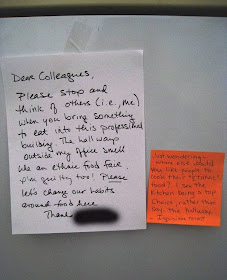 Dear Colleagues,
Please stop and
think of others (i.e., me)
when you bring something
to eat into this professional
building. The hallways
outside my office smell
like an ethnic food fair.
I'm guilty too! Please
let's change our habits
around food here.
Thanks
Just wondering -
where else should
you like people to
cook their "ethnic"
food? I see the
kitchen being a top
choice, rather than
say, the hallway.